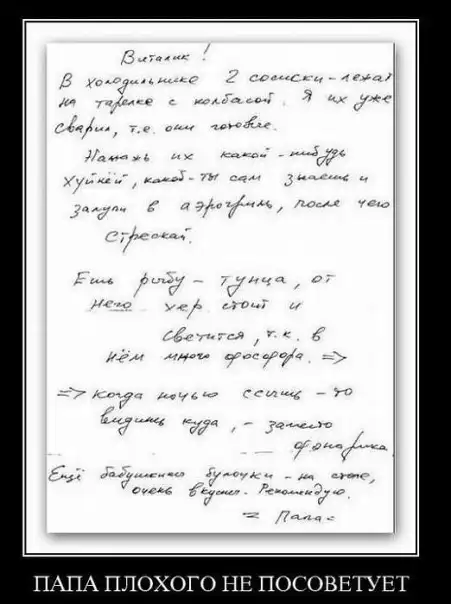 Виталик!
В холодильнике 2 сосиски - лежат
на тарелке с колбасой. Я их уже
сварил, т.е. они готовые.
Намажь их какой-нибудь
хуйнёй, какой - ты сам знаешь и
залупи в аэрогриль, после чего
стрескай.
Ешь рыбу - тунца, от
него хер стоит и
светится, т.к. в
нём много фосфора. =>
=> когда ночью ссышь - то
видишь куда, - заместо
фонарика.
Ещё бабушкины булочки - на столе,
очень вкусные. Рекомендую.
= Папа =
ПАПА ПЛОХОГО НЕ ПОСОВЕТУЕТ